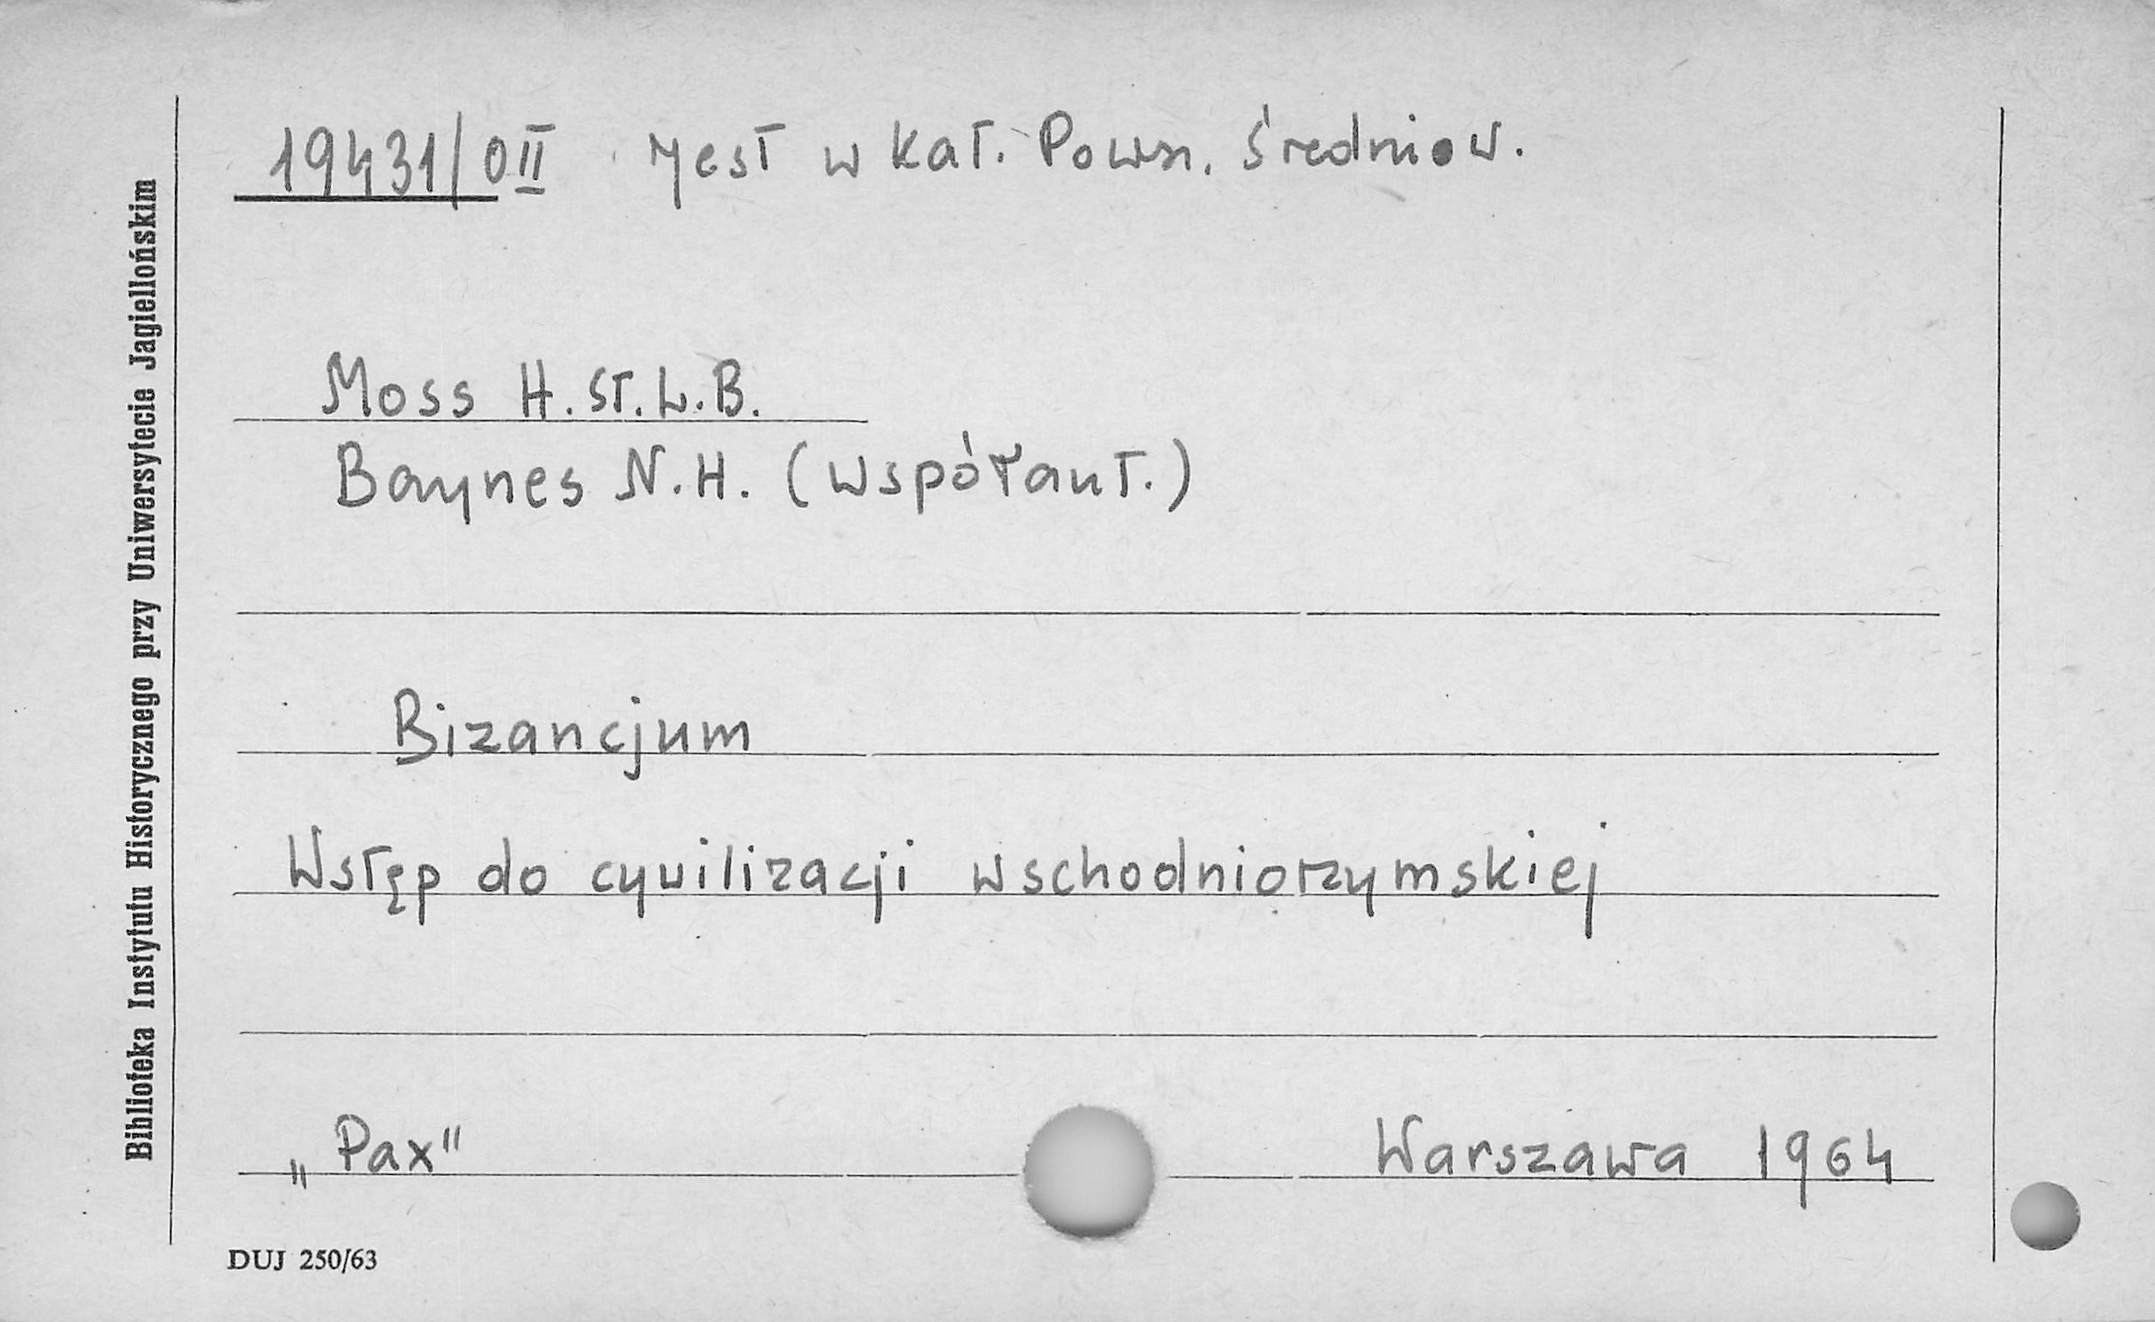 19431/0II Jest w kat. Powsz. średniow.
Moss H. St. L. B.
Baynes N. H. (współaut.)
Bizancjum
Wstęp do cywilizacji wschodniorzymskiej
„Pax" Warszawa 1964
DUJ 250/63
Biblioteka Instytutu Historycznego przy Uniwersytecie Jagiellońskim